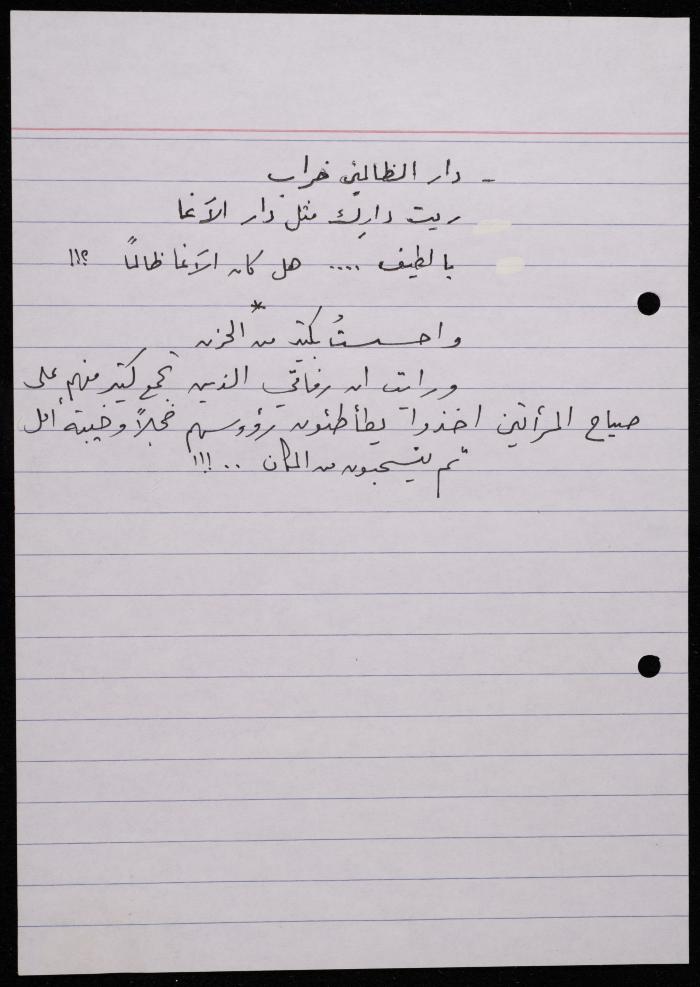 - دار الظالمين خراب
ريت دارك مثل دار الآغا
يا لطيف .... هل كان الآغا ظالماً ؟!!
*
واحسستُ بكثير من الحزن
ورأيت ان رفاقي الذين تجمع كثير منهم على
صياح المرأتين اخذوا يطأطئون رؤوسهم خجلاً وخيبة أمل
ثم ينسحبون من المكان ..!!!